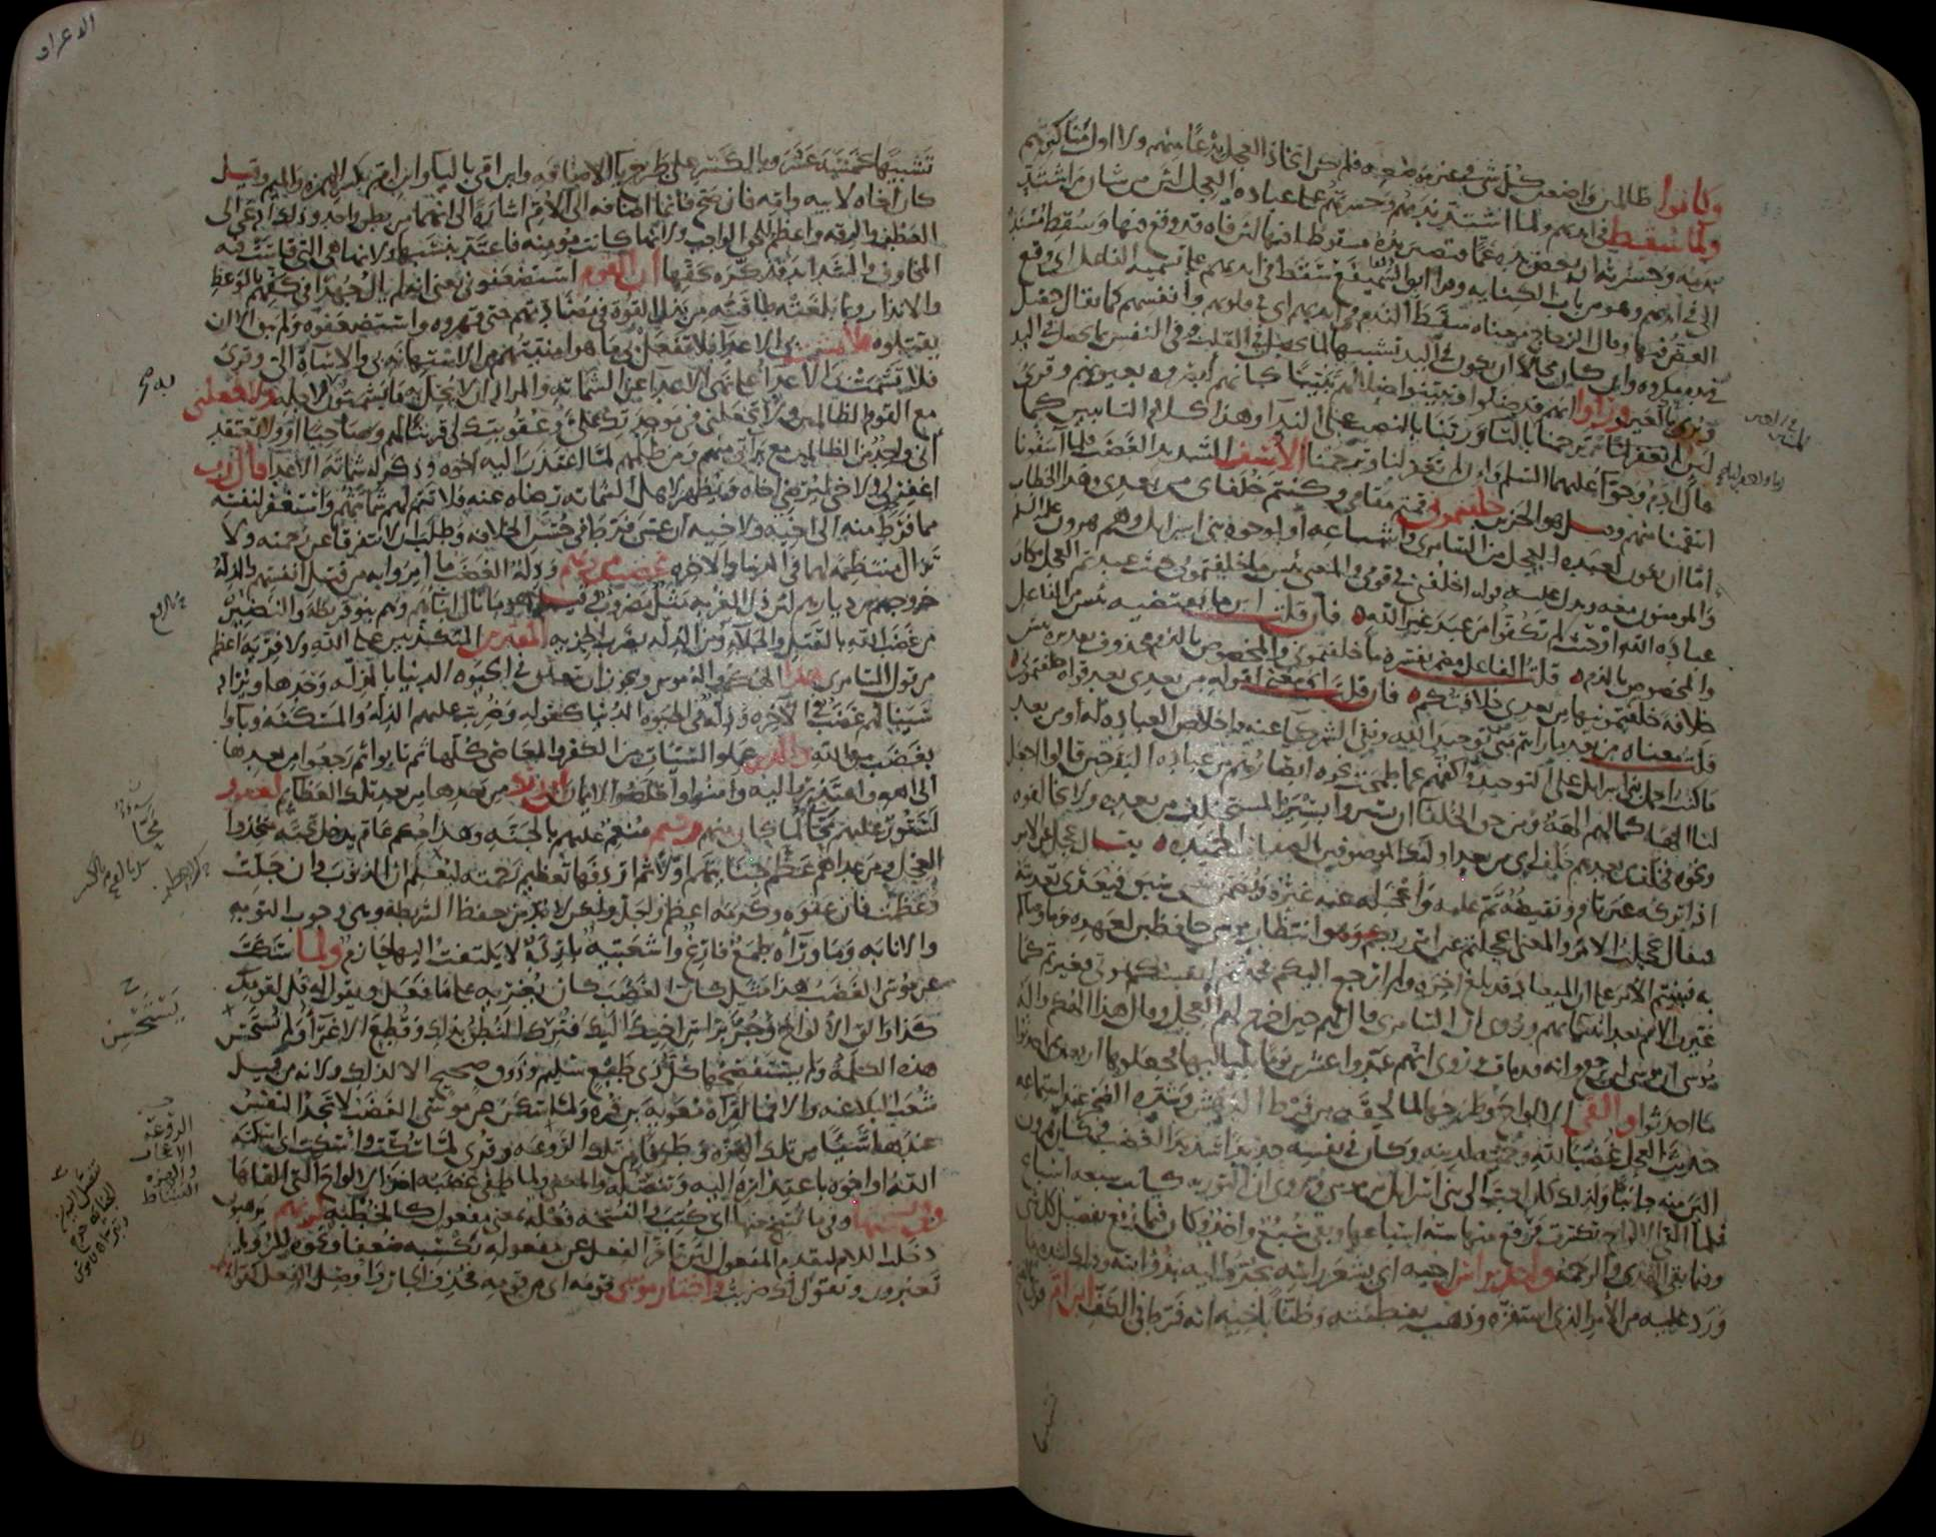 وكانوا ظالمين واضعين كل شي في غير موضعه فلم يكن اتخاذ العجل بدعا منهم ولا اول مناكيرهم
ولما سقط في ايديهم ولما اشتد ندمهم وحسرتهم على عبادة العجل لان من شان من اشتد
ندمه وحسرته ان يعض يده غما فتصير يده مسقوطا فيها لان فاه قد وقع فيها وسقط مسند
الى في ايديهم وهو من باب الكنايه وقرا ابو السميفع سقط في ايديهم على تسمية الفاعل اي وقع
العض فيها وقال الزجاج معناه سقط الندم في ايديهم اي في قلوبهم وانفسهم كما يقال حصل
في يده مكروه وان كان محالا ان يكون في اليد تشبيها لما يحصل في القلب وفي النفس بما يحصل في اليد
ويرى بالعين وراوا انهم قد ضلوا وتبينوا ضلالهم تبينا كانهم ابصروه بعيونهم وقرئ
لئن لم تغفر لنا وترحمنا بالتا وربنا بالنصب على الندا وهذا كلام التايبين كما
قال ادم وحوا عليهما السلم وان لم تغفر لنا وترحمنا الاسف الشديد الغضب فلما اسفونا
انتقمنا منهم وقيل هو الحزين خلفتموني قمتم مقامي وكنتم خلفاي من بعدي وهذا الخطاب
اما ان يكون لعبدة العجل من السامري واشياعه او لوجوه بني اسرايل وهم هرون عليه السلم
والمومنون معه ويدل عليه قوله اخلفني في قومي والمعنى بئس ما خلفتموني حيث عبدتم العجل مكان
عبادة الله او حيث لم تكفوا من عبد غير الله فان قلت اين ما يقتضيه بئس من الفاعل
والمخصوص بالذم قلت الفاعل مضمر يفسره ما خلفتموني والمخصوص بالذم محذوف تقديره بئس
خلافة خلفتمونيها من بعدي خلافتكم فان قلت اي معنى لقوله من بعدي بعد قوله خلفتموني
قلت معناه من بعد ما رايتم مني توحيد الله ونفي الشركا عنه واخلاص العبادة له او من بعد
ما كنت احمل بني اسرايل على التوحيد واكفهم عما طمحت نحوه ابصارهم من عبادة البقر حين قالوا اجعل
لنا الها كما لهم الهة ومن حق الخلفا ان يسيروا بسيرة المستخلف من بعده ولا يخالفوه
ونحوه فخلف من بعدهم خلف اي من بعد اولئك الموصوفين بالصفات الحميده يقال عجل عن الامر
اذا تركه غير تام ونقيضه تم عليه واعجله عنه غيره ويضمن معنى سبق فيعدى تعديته
فيقال عجلت الامر والمعنى اعجلتم عن امر ربكم وهو انتظار موسى حافظين لعهده وما وصاكم
به فبنيتم الامر على ان الميعاد قد بلغ اخره ولم ارجع اليكم فحدثتم انفسكم بموتي فغيرتم كما
غيرت الامم بعد انبيائهم وروي ان السامري قال لهم حين اخرج لهم العجل وقال هذا الهكم واله
موسى ان موسى لن يرجع وانه قد مات وروي انهم عدوا عشرين يوما بلياليها فجعلوها اربعين ثم احدثوا
ما احدثوا والقى الالواح وطرحها لما لحقه من فرط الدهش وشدة الضجر عند استماعه
حديث العجل غضبا لله وحمية لدينه وكان في نفسه حديدا شديد الغضب وكان هرون
الين منه جانبا ولذلك كان احب الى بني اسرايل من موسى وروي ان التوريه كانت سبعه اسباع
فلما القى الالواح تكسرت فرفع منها ستة اسباعها وبقي سبع واحد وكان فيما رفع تفصيل كل شي
وفيما بقي الهدى والرحمة واخذ براس اخيه اي بشعر راسه يجره اليه بذؤابته وذلك لشدة ما
ورد عليه من الامر الذي استفزه وذهب بفطنته وظنا باخيه انه فرط في الكف ابن ام قرئ
الاعراف
تشبيها كخمسة عشر وبالكسر على طرح يا الاضافه وابن امي باليا وابن ام بكسر الهمزه والميم وقيل
كان اخاه لابيه وامه فان صح فانما اضافه الى الام اشارة الى انهما من بطن واحد وذلك ادعى الى
العطف والرقه واعظم للحق الواجب ولانها كانت مومنه فاعتد بنسبها ولانها هي التي قاست فيه
المخاوف والشدايد فذكره بحقها ان القوم استضعفوني يعني انه لم يال جهدا في كفهم بالوعظ
والانذار وبما بلغته طاقته من بذل القوة في مضادتهم حتى قهروه واستضعفوه ولم يبق الا ان
يقتلوه فلا تشمت بي الاعدا فلا تفعل بي ما هو امنيتهم من الاستهانه بي والاساة الي وقرئ
فلا تشمت بي الاعدا على نهي الاعدا عن الشماته والمراد ان لا يحل به ما يشمتون لاجله ولا تجعلني
مع القوم الظالمين ولا تجعلني في موجدتك علي وعقوبتك لي قرينا لهم وصاحبا او ولا تعتقد
اني واحد من الظالمين مع براتي منهم ومن ظلمهم لما اعتذر اليه اخوه وذكر له شماتة الاعدا قال رب
اغفر لي ولاخي ليرضي اخاه ويظهر لاهل الشماته رضاه عنه فلا تتم لهم شماتتهم واستغفر لنفسه
مما فرط منه الى اخيه ولاخيه ان عسى فرط في حسن الخلافه وطلب ان لا يتفرقا عن رحمته ولا
تزال منتظمة لهما في الدنيا والاخره غضب من ربهم وذلة الغضب ما امروا به من قتل انفسهم والذلة
خروجهم من ديارهم لان ذل الغربه مثل مضروب وقيل هو ما نال ابناهم وهم بنو قريظة والنضير
من غضب الله بالقتل والجلا ومن الذلة بضرب الجزيه المفترين المتكذبين على الله ولا فرية اعظم
من قول السامري هذا الهكم واله موسى ويجوز ان يتعلق في الحيوه الدنيا بالذلة وحدها ويراد
سينالهم غضب في الاخره وذلة في الحيوه الدنيا كقوله وضربت عليهم الذلة والمسكنة وباوا
بغضب من الله والذين عملوا السيات من الكفر والمعاصي كلها ثم تابوا ثم رجعوا من بعدها
الى الله واعتذروا اليه وامنوا واخلصوا الايمان ان ربك من بعدها من بعد تلك العظايم لغفور
لستور عليهم محا لما كان منهم رحيم منعم عليهم بالجنة وهذا حكم عام يدخل تحته متخذوا
العجل ومن عداهم عظم جنايتهم اولا ثم اردفها تعظيم رحمته ليعلم ان الذنوب وان جلت
وعظمت فان عفوه وكرمه اعظم واجل ولكن لا بد من حفظ الشريطة وهي وجوب التوبه
والانابه وما وراه طمع فارغ واشعبية باردة لا يلتفت اليها حازم ولما سكت
عن موسى الغضب هذا مثل كان الغضب كان يغريه على ما فعل ويقول له قل لقومك
كذا والق الالواح وجر براس اخيك اليك فترك النطق بذلك وقطع الاغرا ولم يستحسن
هذه الكلمة ولم يستفصحها كل ذي طبع سليم وذوق صحيح الا لذلك ولانه من قبيل
شعب البلاغه والا فما لقراة معوية بن قره ولما سكن عن موسى الغضب لا تجد النفس
عندها شيا من تلك الهزه وطرفا من تلك الروعه وقرئ ولما سكت واسكت اي اسكته
الله او اخوه باعتذاره اليه وتنصله والمعنى ولما طفئ غضبه اخذ الالواح التي القاها
وفي نسختها وفيما نسخ منها اي كتب والنسخه فعله بمعنى مفعول كالخطبه لربهم يرهبون
دخلت اللام لتقدم المفعول لان تاخر الفعل عن مفعوله يكسبه ضعفا ونحوه للرؤيا
تعبرون وتقول لك ضربت واختار موسى قومه اي من قومه فحذف الجار واوصل الفعل كقوله
يستحسن
الروعه